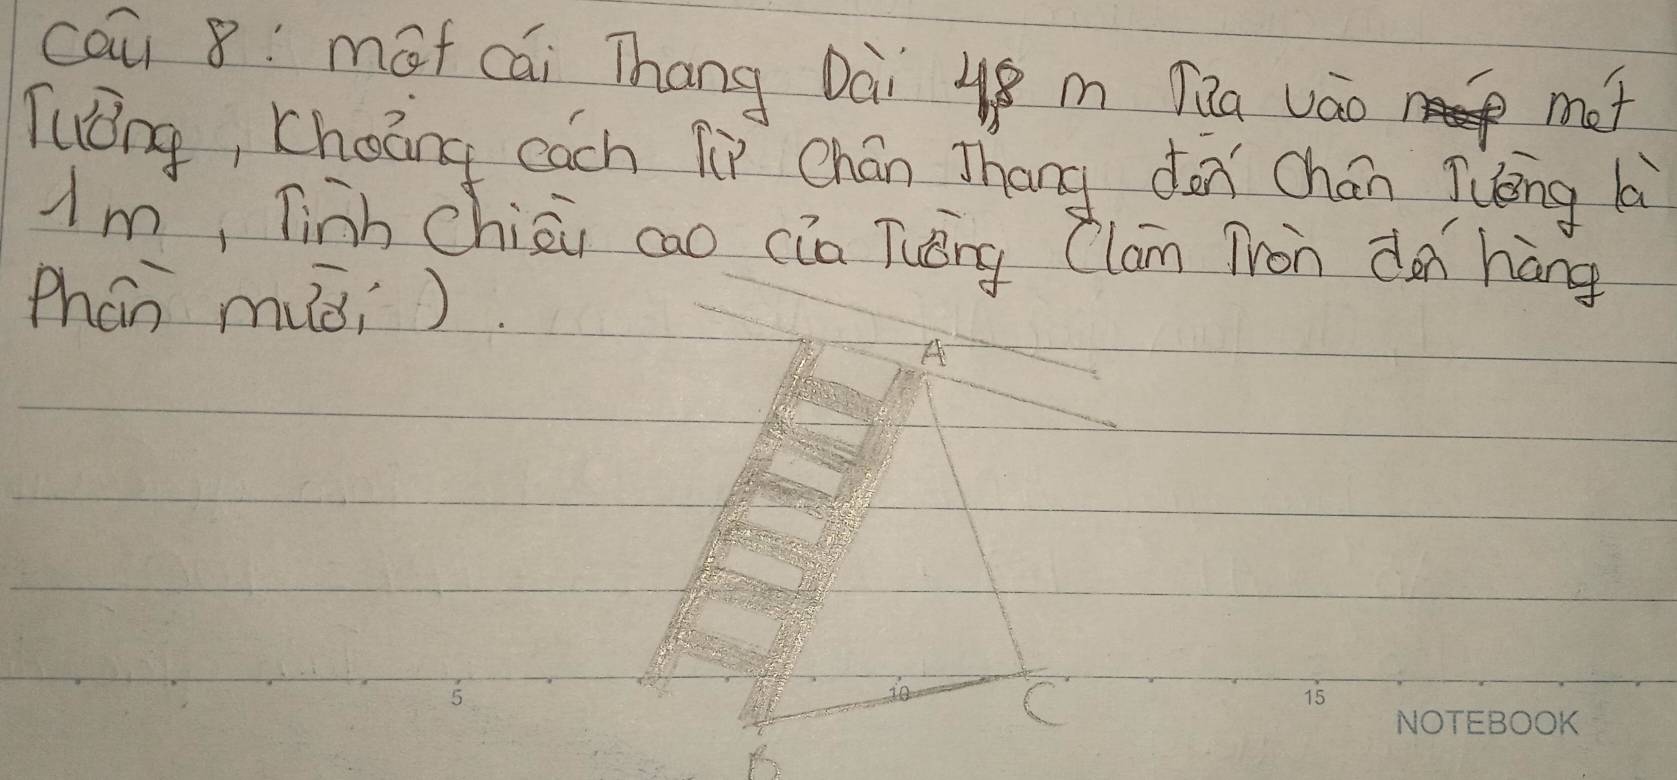 Câu 8: một cái Thang Dài 4,8 m Tựa vào một
Tường, Khoảng cách Từ Chân Thang đến Chân Tường là
1 m, Tính Chiều cao của Tường (làm Tròn đến hàng
Phần mười).
A
5
10
15
C
NOTEBOOK
B